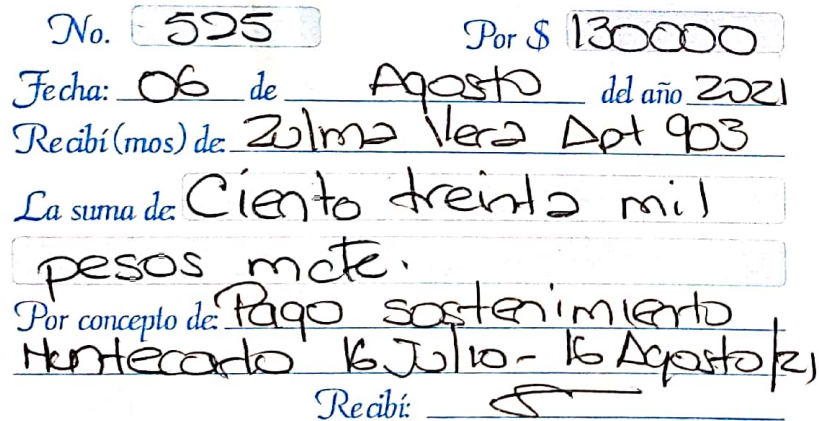 No. 525 Por $ 130000
Fecha: 06 de Agosto del año 2021
Recibí(mos) de: Zulma Vera Apt 903
La suma de: Ciento treinta mil
pesos mcte.
Por concepto de: Pago sostenimiento
16 Julio - 16 Agosto/21
Recibí: